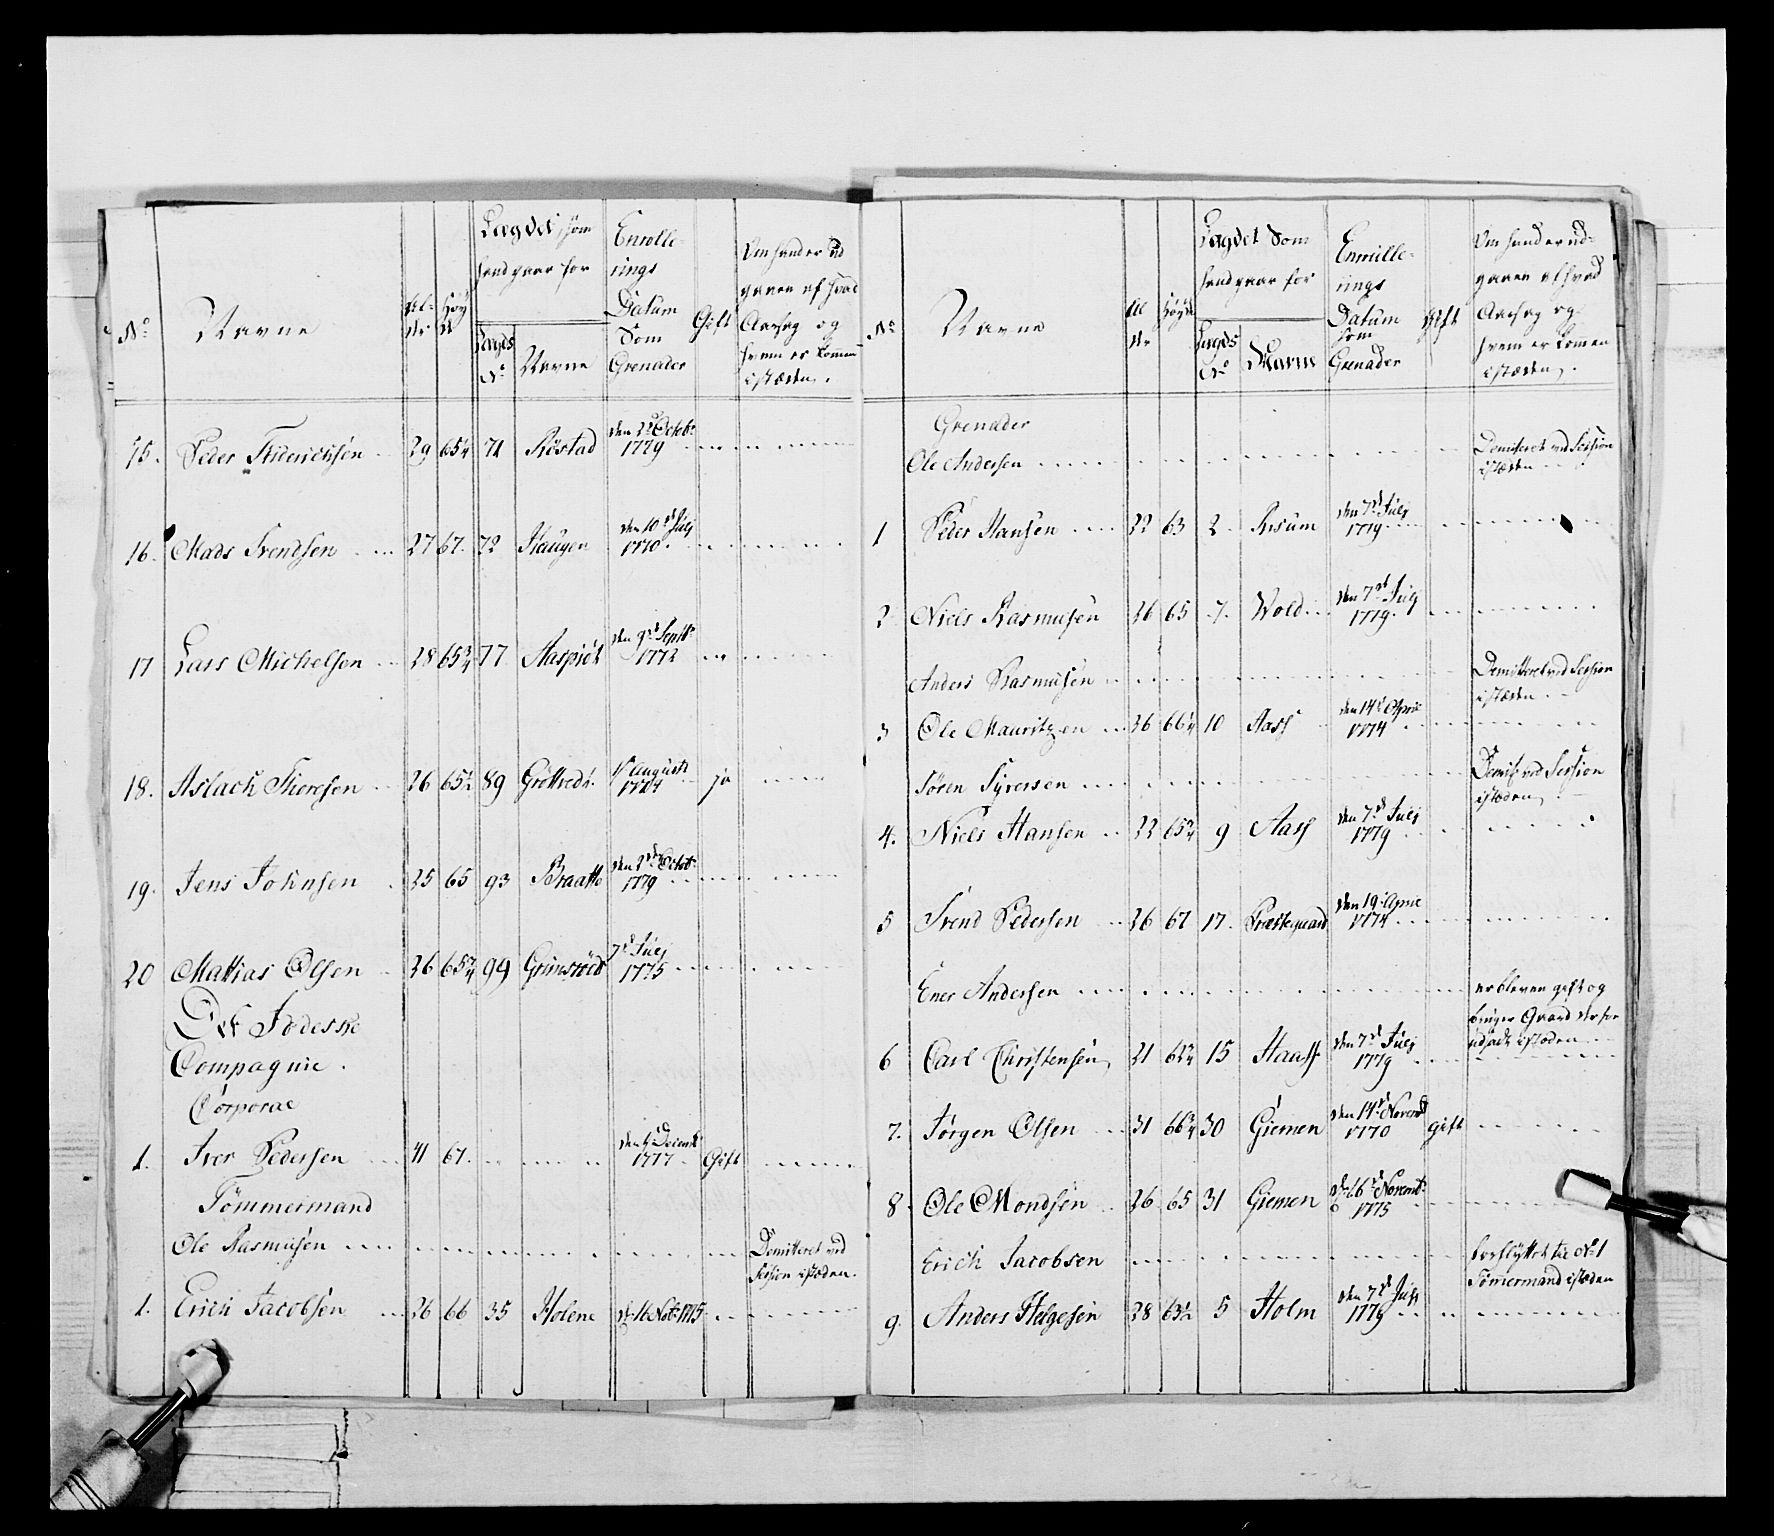 No
Navne
Al-
der
Høy
de
Lægdet, som
hand gaar for
Lægds
No
Navne
Enrolle-
rings
Datum
Som
Grenader
Gift
Om hand er ud
gaaen af hvad
Aarsag og
hvem er kommen
istæden.
15. Peder Friderichsen 29 65¼ 71 Röstad den 2d Octobr 1779
16. Mads Svendsen 27 67 72 Haugen den 10d Julj 1770
17 Lars Michelsen 28 65¾ 77 den 9d Septbr 1772
18. Aslach Thoresen 26 65½ 89 1d Augusti 1774 ja
19. Jens Johnsen 25 65 93 Braatte den 2d Octobr 1779
20 Mattias Olsen 26 65¾ 99 Grimsröd 7d Julj 1775
Det Jvdesske
Compagnie.
Corporal
1. Iver Pedersen 41 67 den Decembr 1777 Gift
Tömmermand
Ole Rasmusen Demitteret ved
Session istæden.
1. Erich Jacobsen 26 66 35 Holene d: 16 Nob: 1775
No
Navne
Al
der
Høyde
Lægdet Som
hand gaar for
Lægds
No
Navne
Enrulle-
rings
Datum
som
Grenader
Gift
Om hand er ud-
gaaen af hvad
Aarsag og
hvem er kommen
istæden.
Grenader
Ole Andersen Demitteret ved Session
istæden
1 Peder Hansen 22 63 2 Risum den 7d Julj 1779
2 Niels Rasmusen 26 65 7 Wold den 7d Julj 1779
Anders Rasmusen Demitteret ved Session
istæden
3 Ole Mauritzen 26 66¼ 10 Aass den 14d April 1774
Sören Syversen Demit ved Session
istæden
4. Niels Hansen 22 65¾ 9 Aass den 7d Julj 1779
5 Svend Pedersen 26 67 17 Præstegaard den 19 April 1774
Ener Andersen er bleven gift og
bruger Gaard derfor
udsadt istæden
6 Carl Christensen 21 62¾ 15 Haass den 7d Julj 1779
7. Jörgen Olsen 31 66¾ 30 Giemen den 14d Novembr 1770 gift
8 Ole Mondsen 26 65 31 Giemen d: 16d Novembr 1775
Erich Jacobsen forflyttet til No 1
Tömmermand istæden
9. Anders Helgesen 28 63½ 5 Holm den 7d Julj 1779